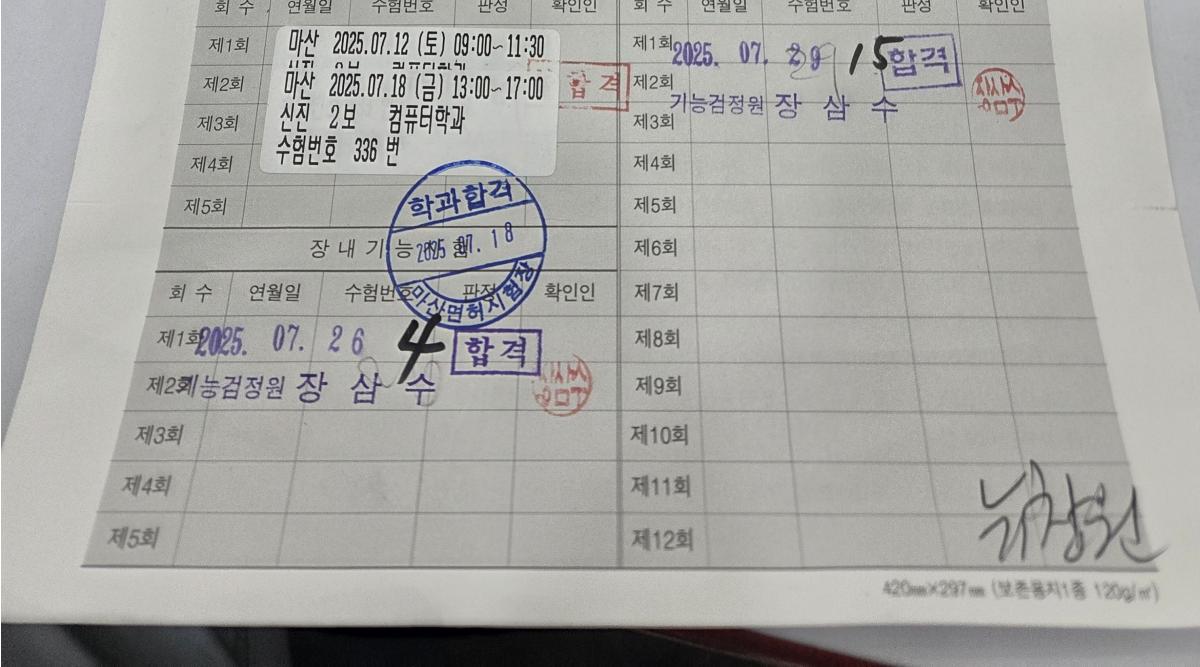 회 수 연월일 수험번호 판정 확인인
제1회
제2회
제3회
제4회
제5회
마산 2025.07.12 (토) 09:00~11:30
마산 2025.07.18 (금) 13:00~17:00
신진 2보 컴퓨터학과
수험번호 336 번
합격
학과합격
2025 07. 18
마산면허시험장
장내기능
회 수 연월일 수험번호 판정 확인인
제1회 2025. 07. 26 4 합격
제2회 기능검정원 장 삼 수
제3회
제4회
제5회
회 수 연월일 수험번호 판정 확인인
제1회 2025. 07. 29 15 합격
제2회
기능검정원 장 삼 수
제3회
제4회
제5회
제6회
제7회
제8회
제9회
제10회
제11회
제12회
420㎜×297㎜ (보존용지1종 120g/㎡)